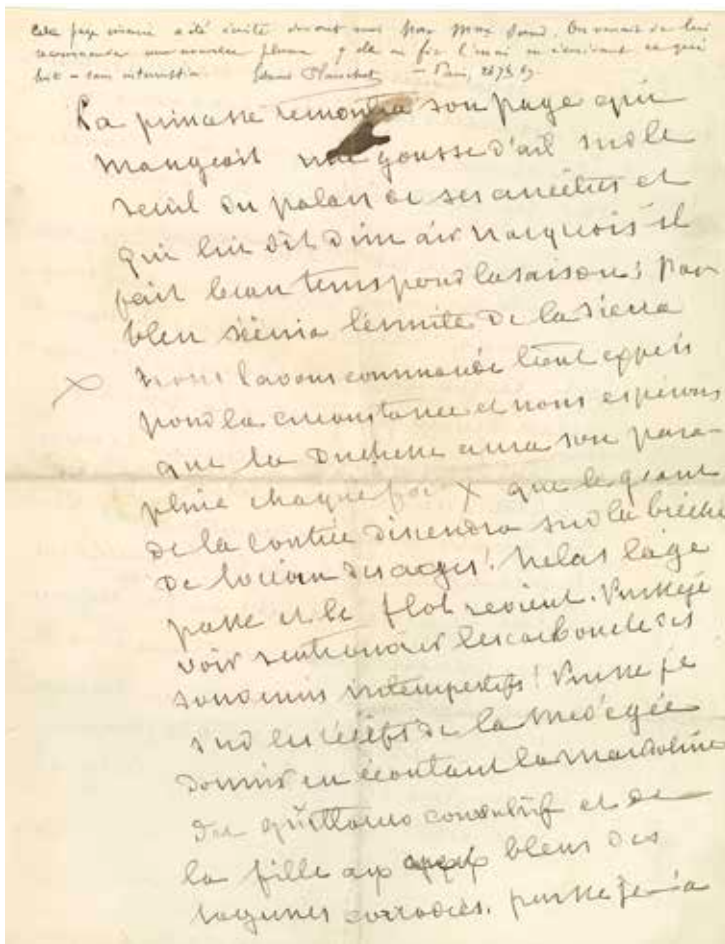 Cette page … a été écrite devant moi par Mme Sand. On venait de lui
recommander une nouvelle plume & elle en fit l'essai en écrivant ce qui
suit – sans interruption. Edmond Plauchut – Paris,
La princesse remontra son page qui
mangeait une gousse d'ail sur le
seuil du palais de ses ancêtres et
qui lui dit d'un air narquois il
fait beau tems pour la saison; par
bleu s'écria l'ermite de la sierra
nous l'avons commandé tout exprès
pour la circonstance et nous espérons
que la Duchesse aura son para-
pluie chaque fois X que le géant
de la contrée descendra sur la brèche
de l'océan des ages! helas l'âge
passe et le flot revient. Puissé je
voir les escarboucles des
intempestifs! Puisse je
sur les récifs de la mer d'égée
dormir en écoutant la mandoline
du et de
la fille aux bleus des
lagunes corrodées. puisse je à